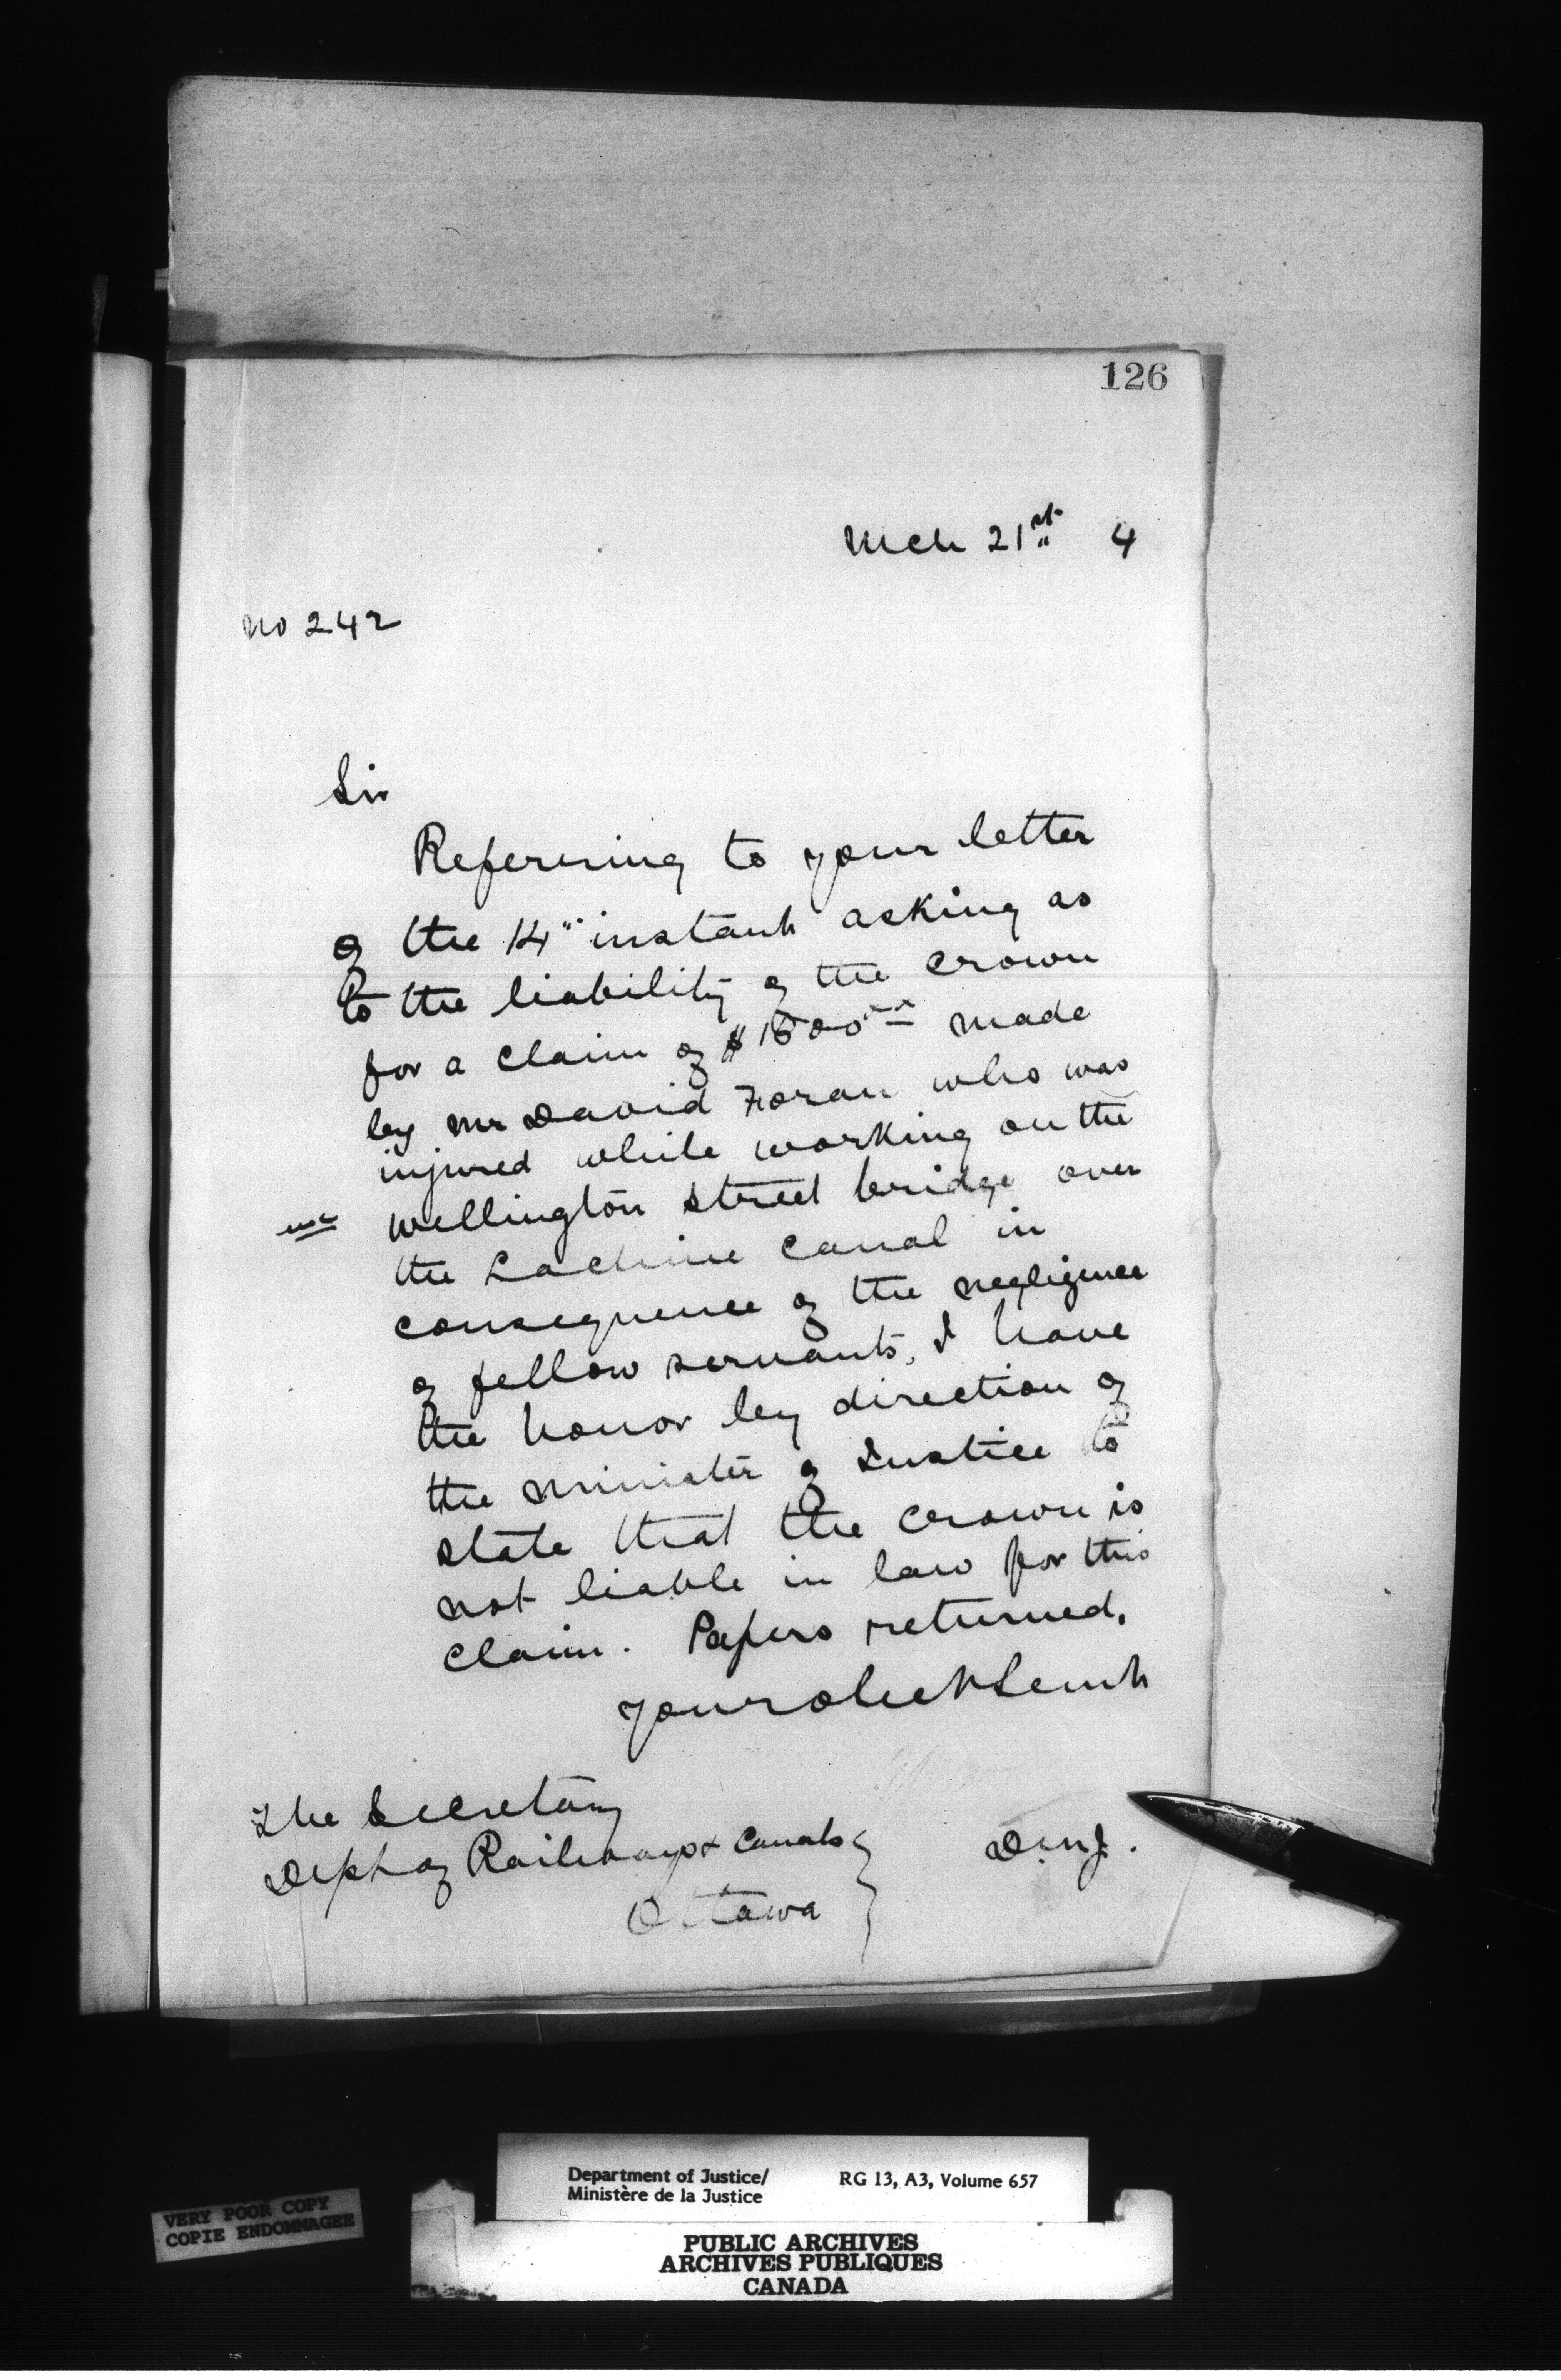 126
Mch 21st 4
No 242
Sir
Referring to your letter
of the 14" instant asking as
to the liability of the Crown
for a claim of $1500 made
by Mr David Foran who was
injured while working on the
Wellington Street bridge over
the Lachine Canal in
consequence of the negligence
of fellow servants, I have
the honor by direction of
the Minister of Justice to
state that the Crown is
not liable in law for this
claim. Papers returned.
Your obet Servt
The Secretary
Dept of Railways & Canals
Ottawa
D.M.J.
Department of Justice/
Ministère de la Justice
RG 13, A3, Volume 657
VERY POOR COPY
COPIE ENDOMMAGEE
PUBLIC ARCHIVES
ARCHIVES PUBLIQUES
CANADA